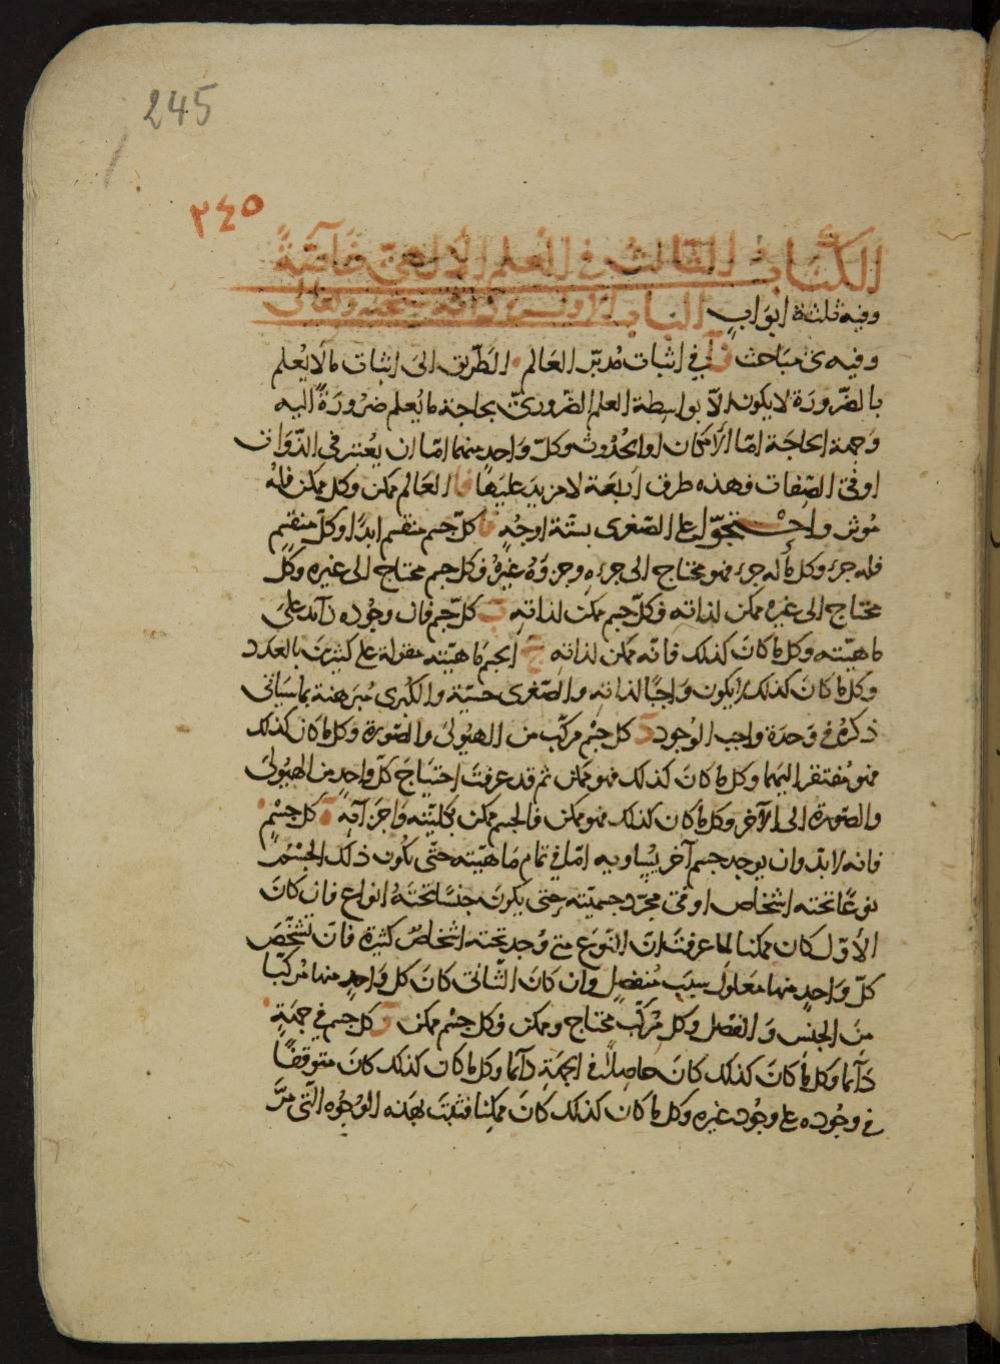 245
٢٤٥
الكتاب الثالث في العلم الالهي خاصة
وفيه ثلثة ابواب الباب الاول في ذاته سبحنه وتعالى
وفيه مباحث في اثبات مدبر العالم الطريق الى اثبات ما لا يعلم
بالضرورة لا يكون الا بواسطة العلم الضروري بحاجة ما يعلم ضرورة اليه
وجهة الحاجة اما الامكان او الحدوث وكل واحد منهما اما ان يعتبر في الذوات
او في الصفات فهذه طرق اربعة لا مزيد عليها العالم ممكن وكل ممكن فله
موثر على الصغرى بستة اوجه كل جسم منقسم ابدا وكل منقسم
فله جزء وكل ما له جزء فهو محتاج الى جزءه وجزؤه غيره فكل جسم محتاج الى غيره وكل
محتاج الى غيره ممكن لذاته فكل جسم ممكن لذاته ب كل جسم فان وجوده زآئد على
ماهيته وكل ما كان كذلك فانه ممكن لذاته ج الجسم ماهيته مقولة على كثيرين بالعدد
وكل ما كان كذلك لا يكون واجبا لذاته والصغرى حسية والكبرى مبرهنة بما سياتي
ذكره في وحدة واجب الوجود د كل جسم مركب من الهيولى والصورة وكل ما كان كذلك
فهو مفتقر اليهما وكل ما كان كذلك فهو ممكن ثم قد عرفت احتياج كل واحد من الهيولى
والصورة الى الآخر وكل ما كان كذلك فهو ممكن فالجسم ممكن بكليته واجزآئه ه كل جسم
فانه لا بد وان يوجد جسم آخر يساويه اما في تمام ماهيته حتى يكون ذلك الجسم
نوعا تحته اشخاص او في مجرد جسميته حتى يكون جنسا تحته انواع فان كان
الاول كان ممكنا لما عرفت ان النوع متى وجد تحته اشخاص كثيرة فان تشخص
كل واحد منها معلول سبب منفصل وان كان الثاني كان كل واحد منها مركبا
من الجنس والفصل وكل مركب محتاج وممكن فكل جسم ممكن و كل جسم في جهة
دآئما وكل ما كان كذلك كان حاصلا في الجهة دآئما وكل ما كان كذلك كان متوقفا
في وجوده على وجود غيره وكل ما كان كذلك كان ممكنا فثبت بهذه الوجوه التي مر